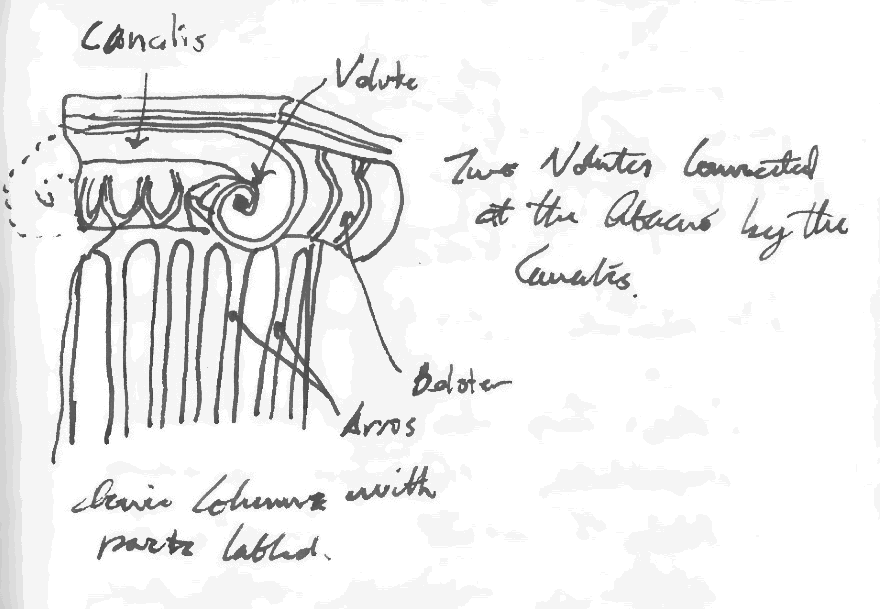 Canalis
Volute
Two Volutes Connected
at the Abacus by the
Canalis.
Bolster
Arros
Ionic Columns with
parts labled.